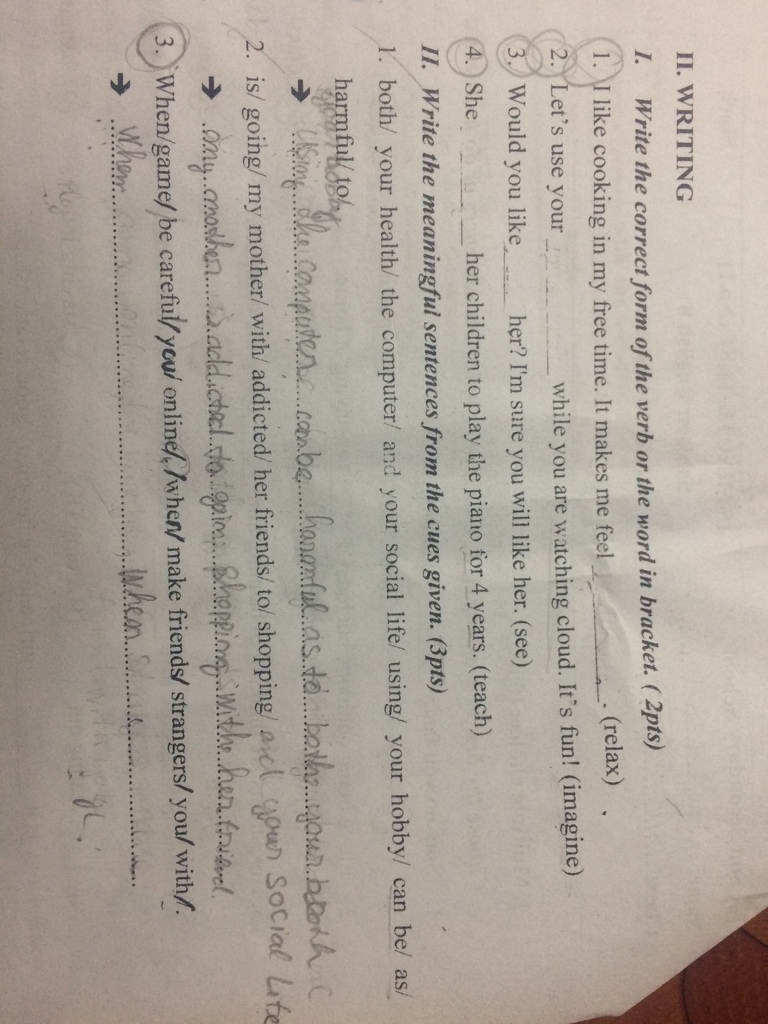 II. WRITING
I. Write the correct form of the verb or the word in bracket. ( 2pts)
1. I like cooking in my free time. It makes me feel ________. (relax)
2. Let's use your ________ while you are watching cloud. It's fun! (imagine)
3. Would you like ____ her? I'm sure you will like her. (see)
4. She ________ her children to play the piano for 4 years. (teach)
II. Write the meaningful sentences from the cues given. (3pts)
1. both/ your health/ the computer/ and your social life/ using/ your hobby/ can be/ as/
harmful/ to/
➔ using the computer can be harmful as to bothe your
and your social Life
2. is/ going/ my mother/ with/ addicted/ her friends/ to/ shopping/
➔ my mother is addicted to going shopping with her friend.
3. When/game/ be careful/ you/ online/, /when/ make friends/ strangers/ you/ with/.
➔ When When